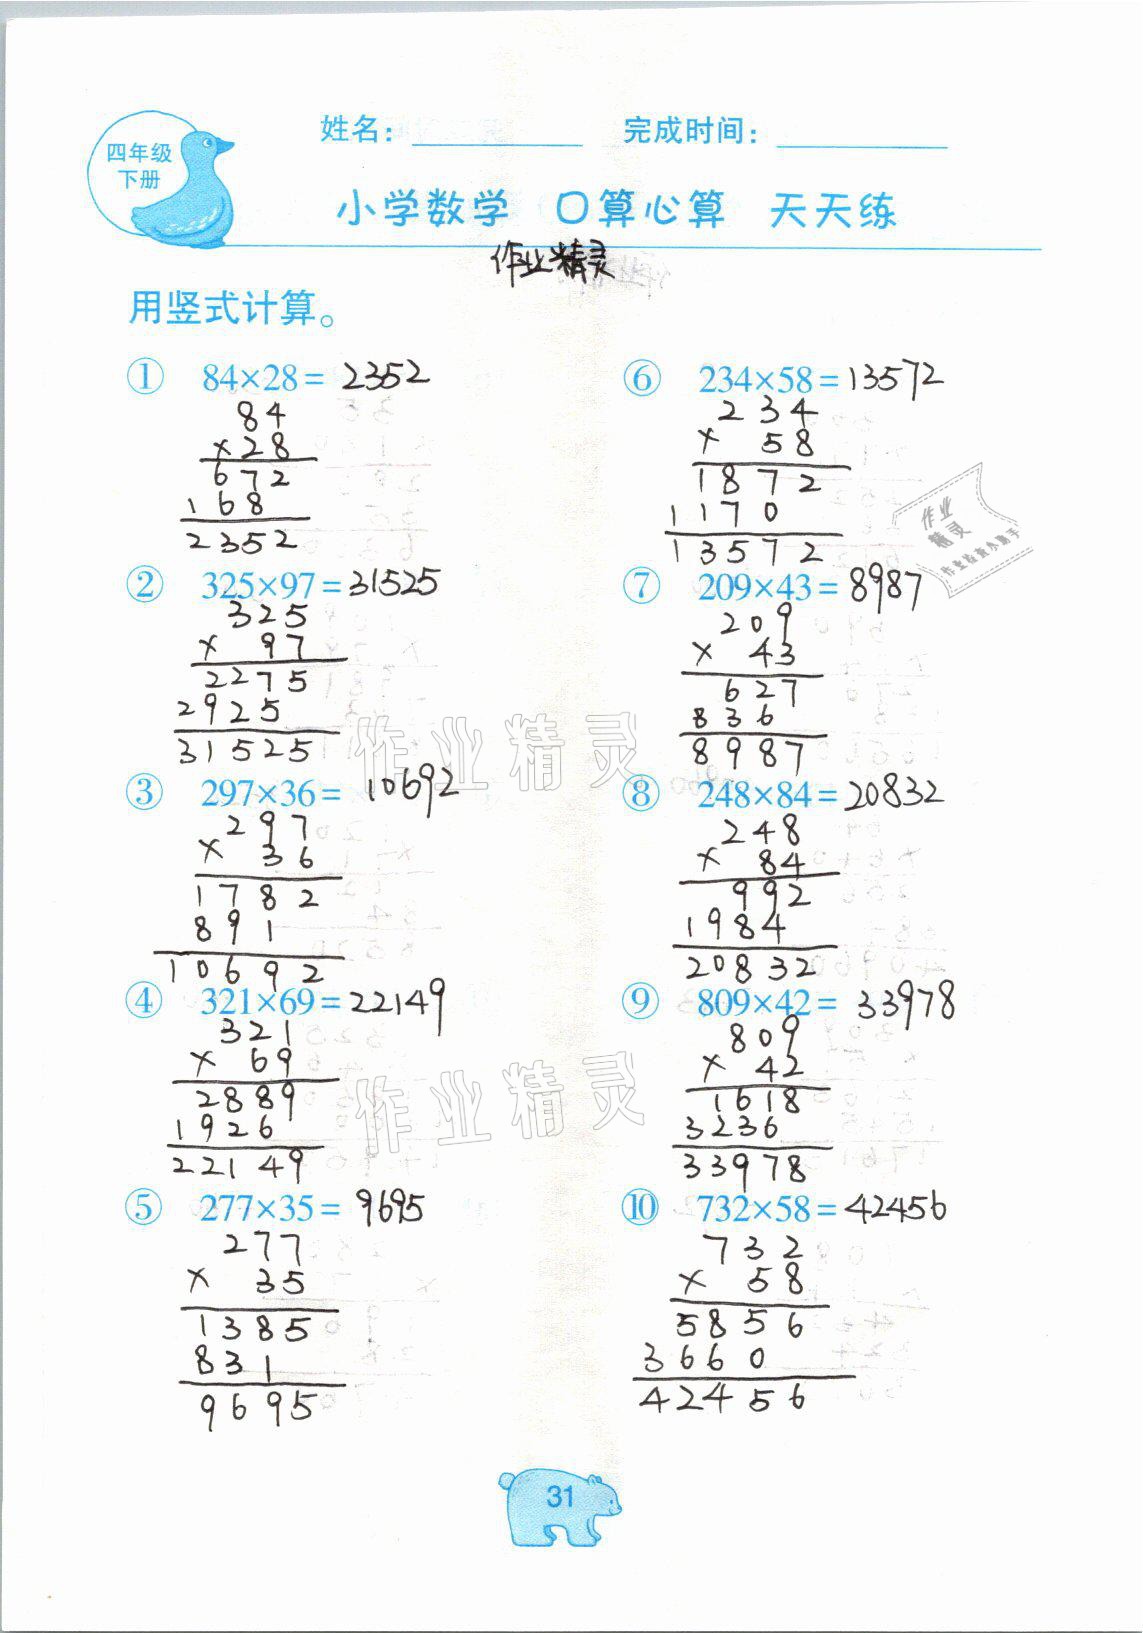 四年级
下册
姓名：
完成时间：
小学数学 口算心算 天天练
作业精灵
用竖式计算。
① 84×28= 2352
84
×28
672
168
2352
② 325×97= 31525
325
× 97
2275
2925
31525
③ 297×36= 10692
297
× 36
1782
891
10692
④ 321×69= 22149
321
× 69
2889
1926
22149
⑤ 277×35= 9695
277
× 35
1385
831
9695
⑥ 234×58= 13572
234
× 58
1872
1170
13572
⑦ 209×43= 8987
209
× 43
627
836
8987
⑧ 248×84= 20832
248
× 84
992
1984
20832
⑨ 809×42= 33978
809
× 42
1618
3236
33978
⑩ 732×58= 42456
732
× 58
5856
3660
42456
作业
精灵
作业精灵
作业精灵
31